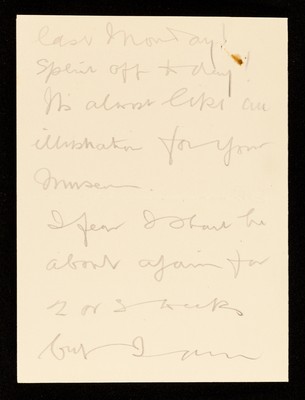 last Monday!
Spent off to day!
Its almost like an
illustration for your
Museum.
I fear I shant be
about again for
2 or 3 weeks
but I am